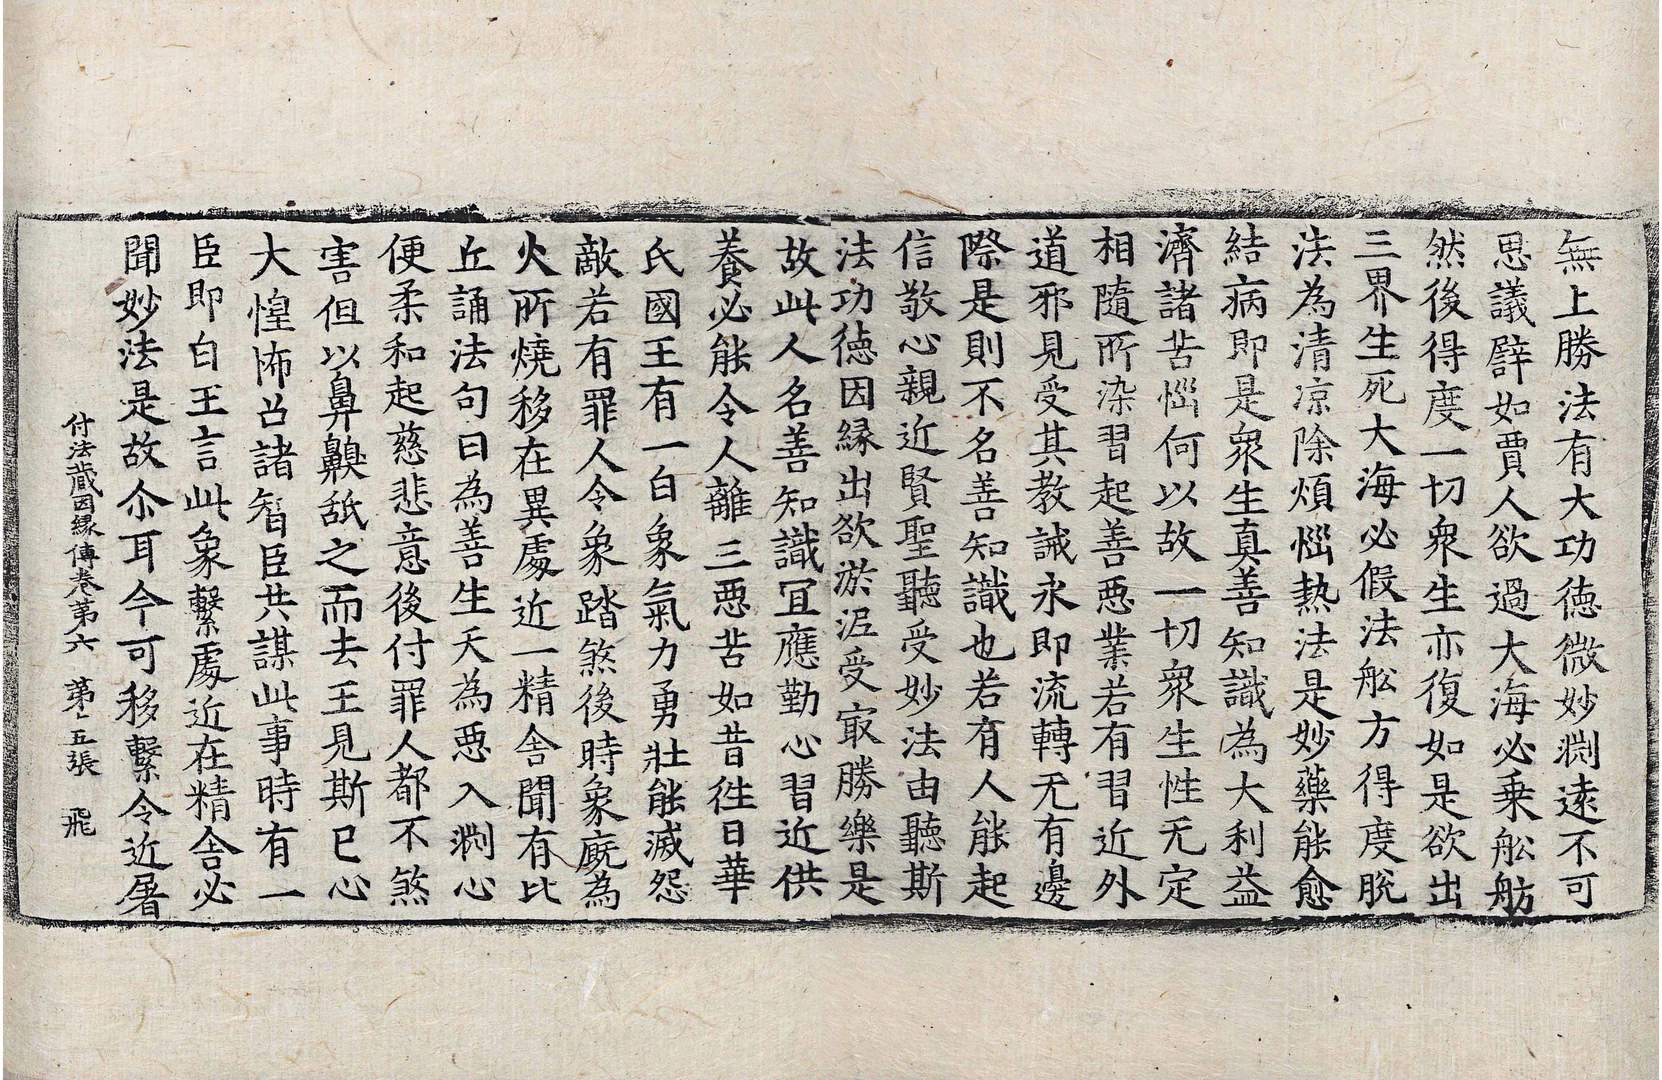 無上勝法有大功德微妙渕遠不可
思議譬如賈人欲過大海必乗舩舫
然後得度一切衆生亦復如是欲出
三界生死大海必假法舩方得度脫
法為清凉除煩惱熱法是妙藥能愈
結病即是衆生真善知識為大利益
濟諸苦惱何以故一切衆生性无定
相隨所染習起善惡業若有習近外
道邪見受其教誡永即流轉无有邊
際是則不名善知識也若有人能起
信敬心親近賢聖聽受妙法由聽斯
法功德因緣出欲淤泥受㝡勝樂是
故此人名善知識冝應勤心習近供
養必能令人離三惡苦如昔徃日華
氏國王有一白象氣力勇壯能滅怨
敵若有罪人令象踏煞後時象廐為
火所燒移在異處近一精舍聞有比
丘誦法句曰為善生天為惡入渕心
便柔和起慈悲意後付罪人都不煞
害但以鼻齅舐之而去王見斯已心
大惶怖召諸智臣共謀此事時有一
臣即白王言此象繫處近在精舍必
聞妙法是故尒耳今可移繫令近屠
付法藏因緣傳卷第六 第十五張 飛